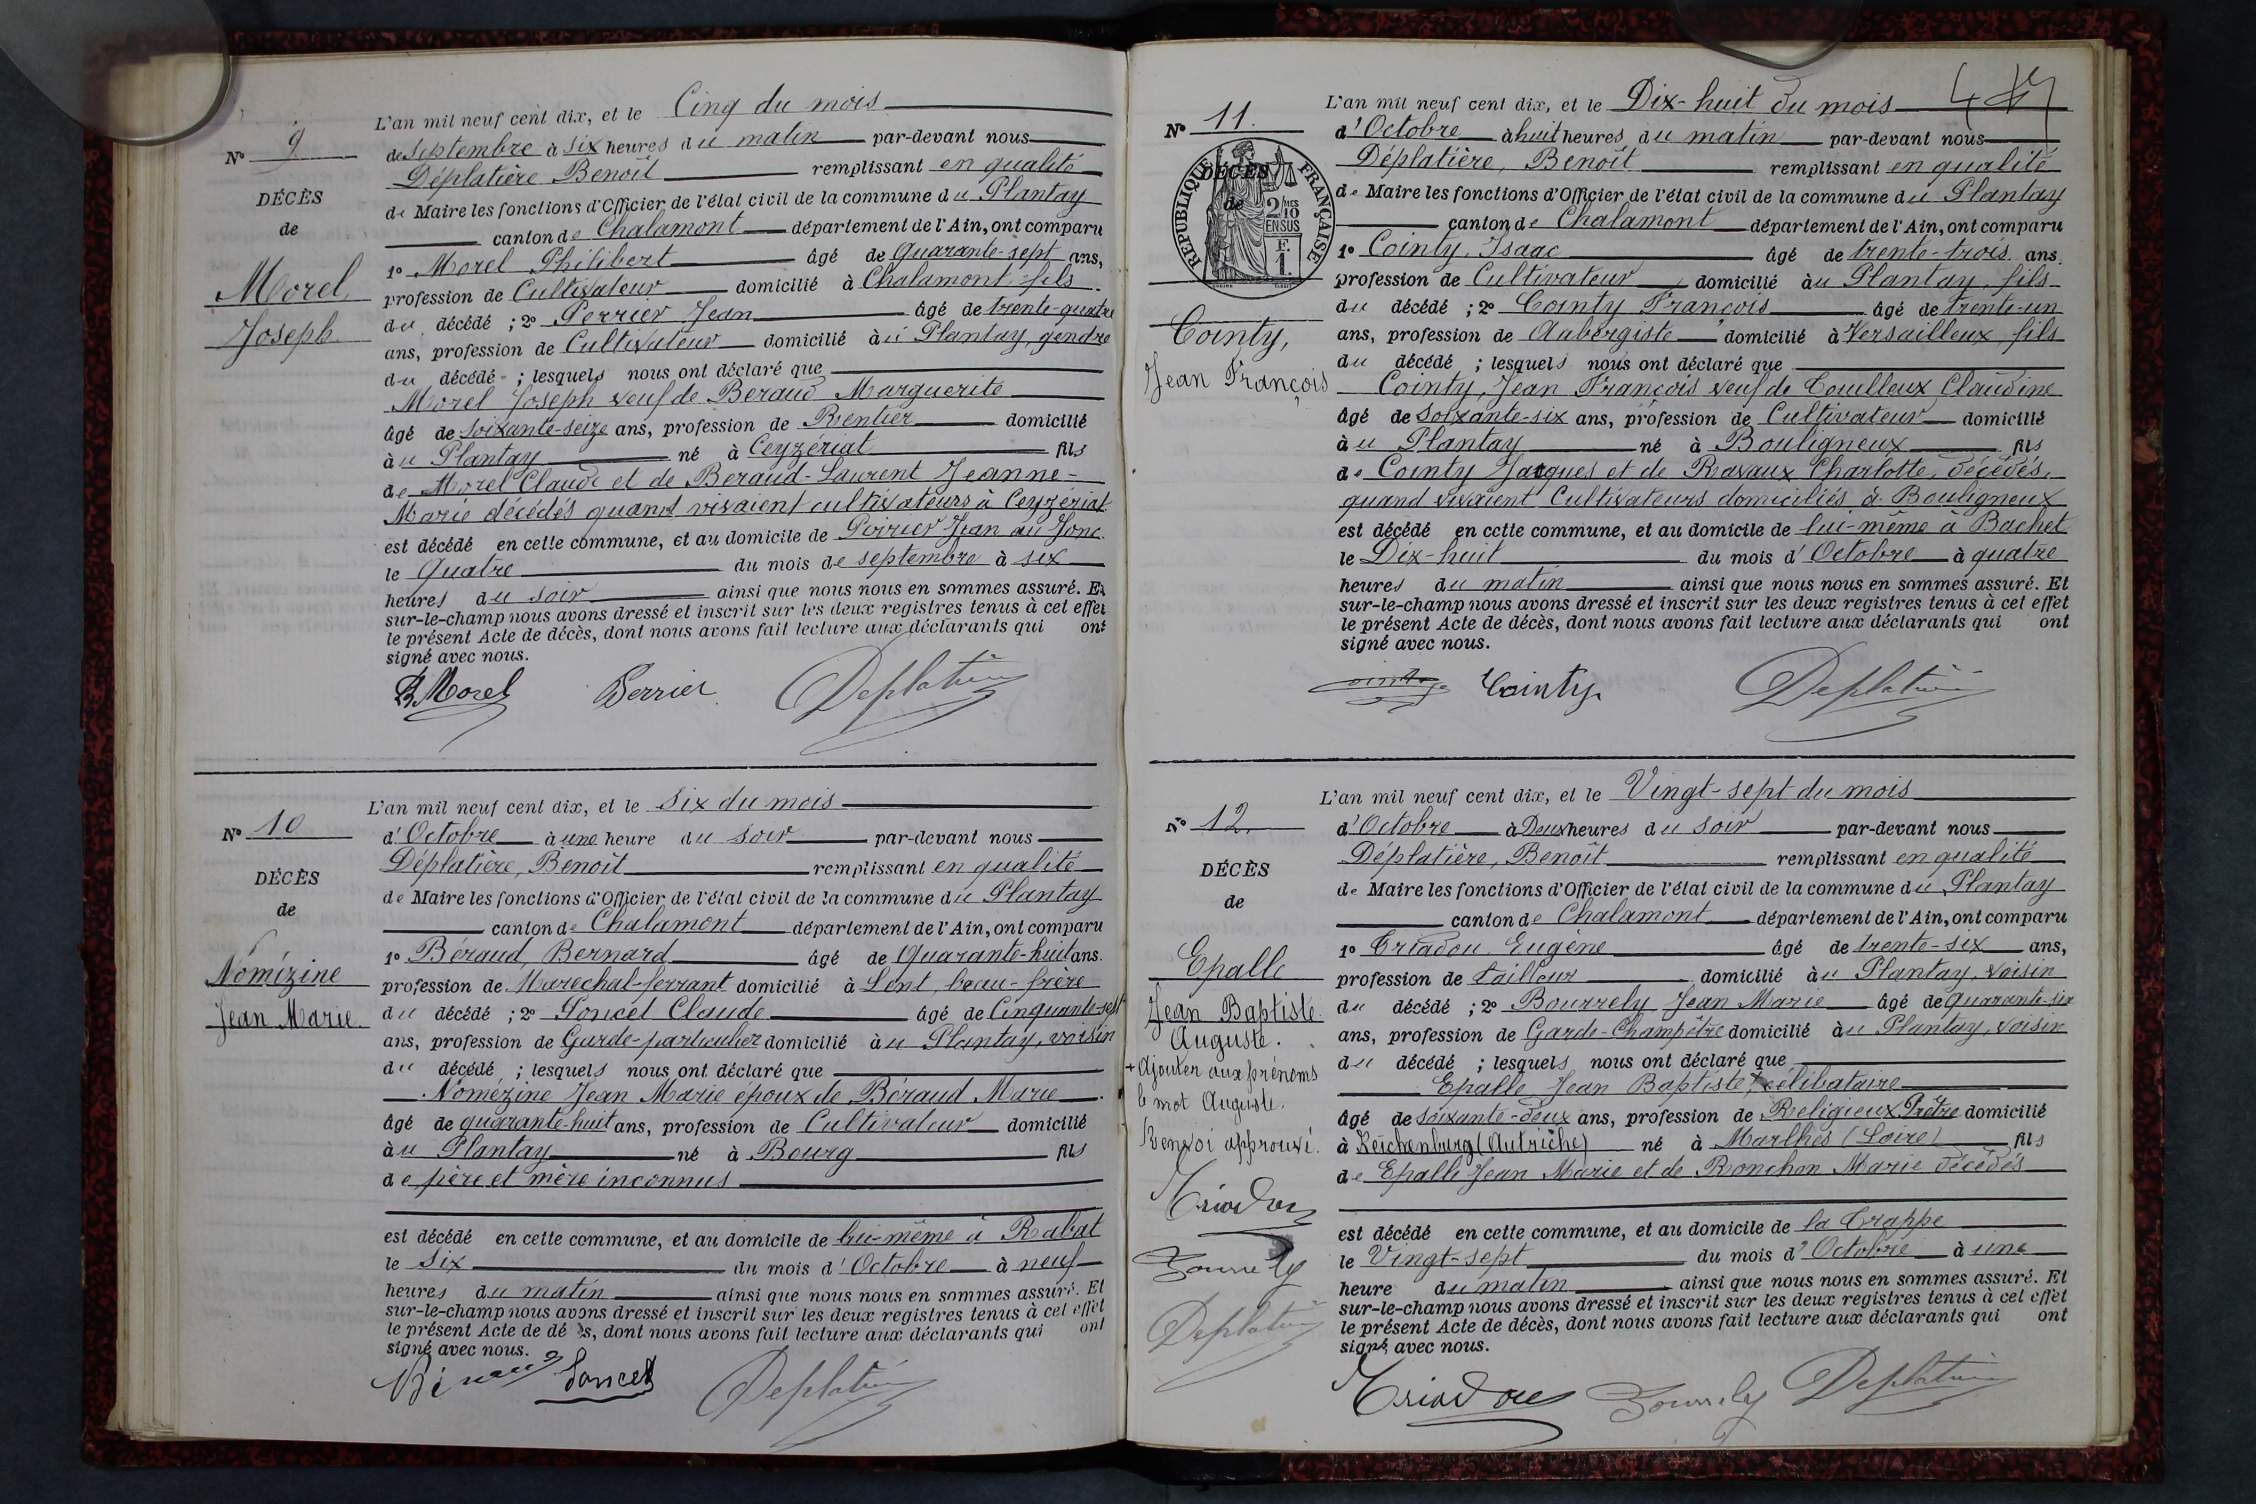 L'an mil neuf cent dix, et le Cinq du mois
N° 9
de septembre à six heures du matin par-devant nous
Déplatière Benoit remplissant en qualité
DÉCÈS
de Maire les fonctions d'Officier de l'état civil de la commune du Plantay
de
canton de Chalamont département de l'Ain, ont comparu
1° Morel Philibert âgé de Quarante-sept ans,
Morel
profession de Cultivateur domicilié à Chalamont fils
Joseph
du décédé ; 2° Perrier Jean âgé de trente-quatre
ans, profession de Cultivateur domicilié au Plantay, gendre
du décédé ; lesquels nous ont déclaré que
Morel Joseph veuf de Beraud Marguerite
âgé de soixante-seize ans, profession de Rentier domicilié
au Plantay né à Ceyzériat fils
de Morel Claude et de Beraud-Laurent Jeanne-
Marie décédés quand vivaient cultivateurs à Ceyzériat
est décédé en cette commune, et au domicile de Perrier Jean au Jonc
le Quatre du mois de septembre à six
heures du soir ainsi que nous nous en sommes assuré. Et
sur-le-champ nous avons dressé et inscrit sur les deux registres tenus à cet effet
le présent Acte de décès, dont nous avons fait lecture aux déclarants qui ont
signé avec nous.
P. Morel Perrier Deplatière
L'an mil neuf cent dix, et le Six du mois
N° 10
d'Octobre à une heure du soir par-devant nous
Déplatière, Benoit remplissant en qualité
DÉCÈS
de Maire les fonctions d'Officier de l'état civil de la commune du Plantay
de
canton de Chalamont département de l'Ain, ont comparu
1° Béraud Bernard âgé de Quarante-huit ans.
Nomézine
profession de Marechal-ferrant domicilié à Lent, beau-frère
Jean Marie
du décédé ; 2° Poncet Claude âgé de Cinquante-sept
ans, profession de Garde-particulier domicilié au Plantay, voisin
du décédé ; lesquels nous ont déclaré que
Nomézine Jean Marie époux de Béraud Marie
âgé de quarante-huit ans, profession de Cultivateur domicilié
au Plantay né à Bourg fils
de père et mère inconnus
est décédé en cette commune, et au domicile de lui-même à Rabat
le Six du mois d'Octobre à neuf
heures du matin ainsi que nous nous en sommes assuré. Et
sur-le-champ nous avons dressé et inscrit sur les deux registres tenus à cet effet
le présent Acte de décès, dont nous avons fait lecture aux déclarants qui ont
signé avec nous.
Béraud Poncet Deplatière
L'an mil neuf cent dix, et le Dix-huit du mois
N° 11.
d'Octobre à huit heures du matin par-devant nous
Déplatière, Benoit remplissant en qualité
RÉPUBLIQUE FRANÇAISE
2/10 EN SUS
F. 1.
DÉCÈS
de Maire les fonctions d'Officier de l'état civil de la commune du Plantay
de
canton de Chalamont département de l'Ain, ont comparu
1° Cointy Isaac âgé de trente-trois ans.
profession de Cultivateur domicilié au Plantay, fils
du décédé ; 2° Cointy François âgé de trente-un
Cointy,
ans, profession de Aubergiste domicilié à Versailleux fils
Jean François
du décédé ; lesquels nous ont déclaré que
Cointy, Jean François veuf de Couilleux Claudine
âgé de soixante-six ans, profession de Cultivateur domicilié
au Plantay né à Bouligneux fils
de Cointy Jacques et de Ravaux Charlotte, décédés,
quand vivaient Cultivateurs domiciliés à Bouligneux
est décédé en cette commune, et au domicile de lui-même à Bachet
le Dix-huit du mois d'Octobre à quatre
heures du matin ainsi que nous nous en sommes assuré. Et
sur-le-champ nous avons dressé et inscrit sur les deux registres tenus à cet effet
le présent Acte de décès, dont nous avons fait lecture aux déclarants qui ont
signé avec nous.
Cointy Cointy Deplatière
L'an mil neuf cent dix, et le Vingt-sept du mois
N° 12.
d'Octobre à Deux heures du soir par-devant nous
Déplatière, Benoit remplissant en qualité
DÉCÈS
de Maire les fonctions d'Officier de l'état civil de la commune du Plantay
de
canton de Chalamont département de l'Ain, ont comparu
1° Criadou Eugène âgé de trente-six ans,
Epalle
profession de tailleur domicilié au Plantay, voisin
Jean Baptiste
du décédé ; 2° Bourrely Jean Marie âgé de quarante-six
Auguste.
ans, profession de Garde-Champêtre domicilié au Plantay, voisin
+ Ajouter aux prénoms
du décédé ; lesquels nous ont déclaré que
le mot Auguste.
Epalle Jean Baptiste + célibataire
Renvoi approuvé.
âgé de soixante-deux ans, profession de Religieux Prêtre domicilié
à Reichenburg (Autriche) né à Marlhes (Loire) fils
de Epalle Jean Marie et de Ronchon Marie décédés
Criadou
est décédé en cette commune, et au domicile de la Trappe
Bourrely
le Vingt-sept du mois d'Octobre à une
heure du matin ainsi que nous nous en sommes assuré. Et
Deplatière
sur-le-champ nous avons dressé et inscrit sur les deux registres tenus à cet effet
le présent Acte de décès, dont nous avons fait lecture aux déclarants qui ont
signé avec nous.
Criadou Bourrely Deplatière